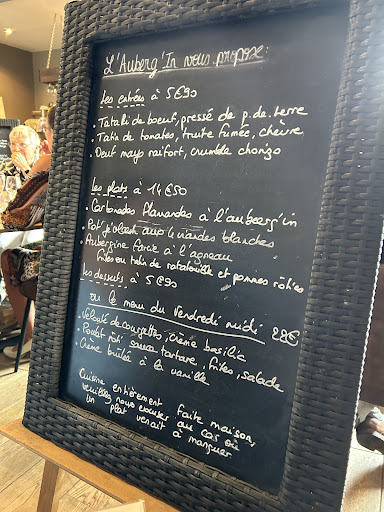 L'Auberg'In vous propose:
Les entrées à 5€90
. Tataki de boeuf, pressé de p. de terre
. Tatin de tomates, truite fumée, chèvre
. Oeuf mayo raifort, crumble chorizo
Les plats à 14€50
. Carbonades flamandes à l'auberg'in
. Potj'evleesch aux 4 viandes blanches
. Aubergine farcie à l'agneau
frites ou tatin de ratatouille et pommes rôties
Les desserts à 5€90
ou le menu du Vendredi midi 22€
. Velouté de courgettes, crème basilic
. Poulet rôti sauce tartare, frites, salade
. Crème brûlée à la vanille
Cuisine entièrement faite maison,
veuillez nous excuser au cas où
un plat venait à manquer